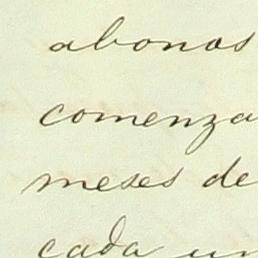 abonos
comenza
meses de
cada un